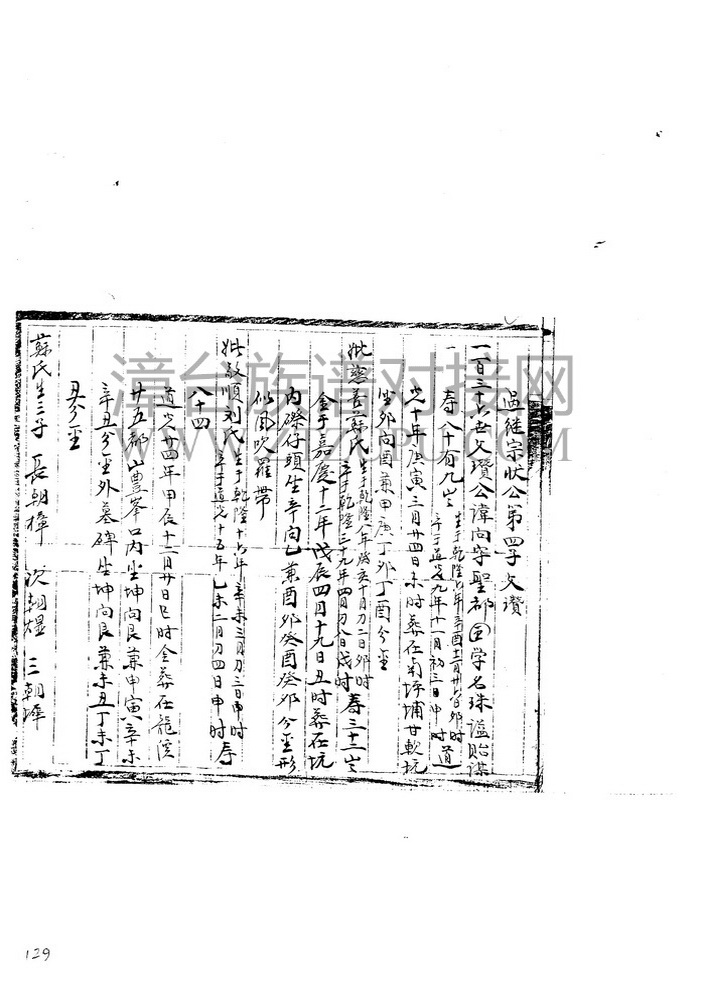 継宗状公第四子文瓚
一百三十六世文瓚公諱向字聖都国学名珠謚貽謀
寿八十有九岁
生于乾隆六年辛酉十二月廿六日卯时
卒于道光九年十一月初三日申时道
光十年庚寅三月廿四日未时葬在南坪埔甘軟坑
坐卯向酉兼甲庚丁卯丁酉分坐
妣慈善蘇氏
生于乾隆八年癸亥十月初二日卯时
卒于乾隆三十九年四月初八日戌时
寿三十二岁
金于嘉慶十三年戊辰四月十九日丑时葬在坑
内磜仔頭坐辛向乙兼酉卯癸酉癸卯分坐形
似風吹羅帶
妣敬順刘氏
生于乾隆十六年辛未三月初三日申时
卒于道光十五年乙未二月初四日申时寿
八十四
道光廿四年甲辰十二月廿日巳时全葬在龍溪
廿五都山豊峯口内坐坤向艮兼申寅辛未
辛丑分坐外墓碑坐坤向艮兼未丑丁未丁
丑分坐
蘇氏生三子 長朝樟 次朝煜 三朝
漳台族谱对接网
WWW.ZTZUPU.COM
129